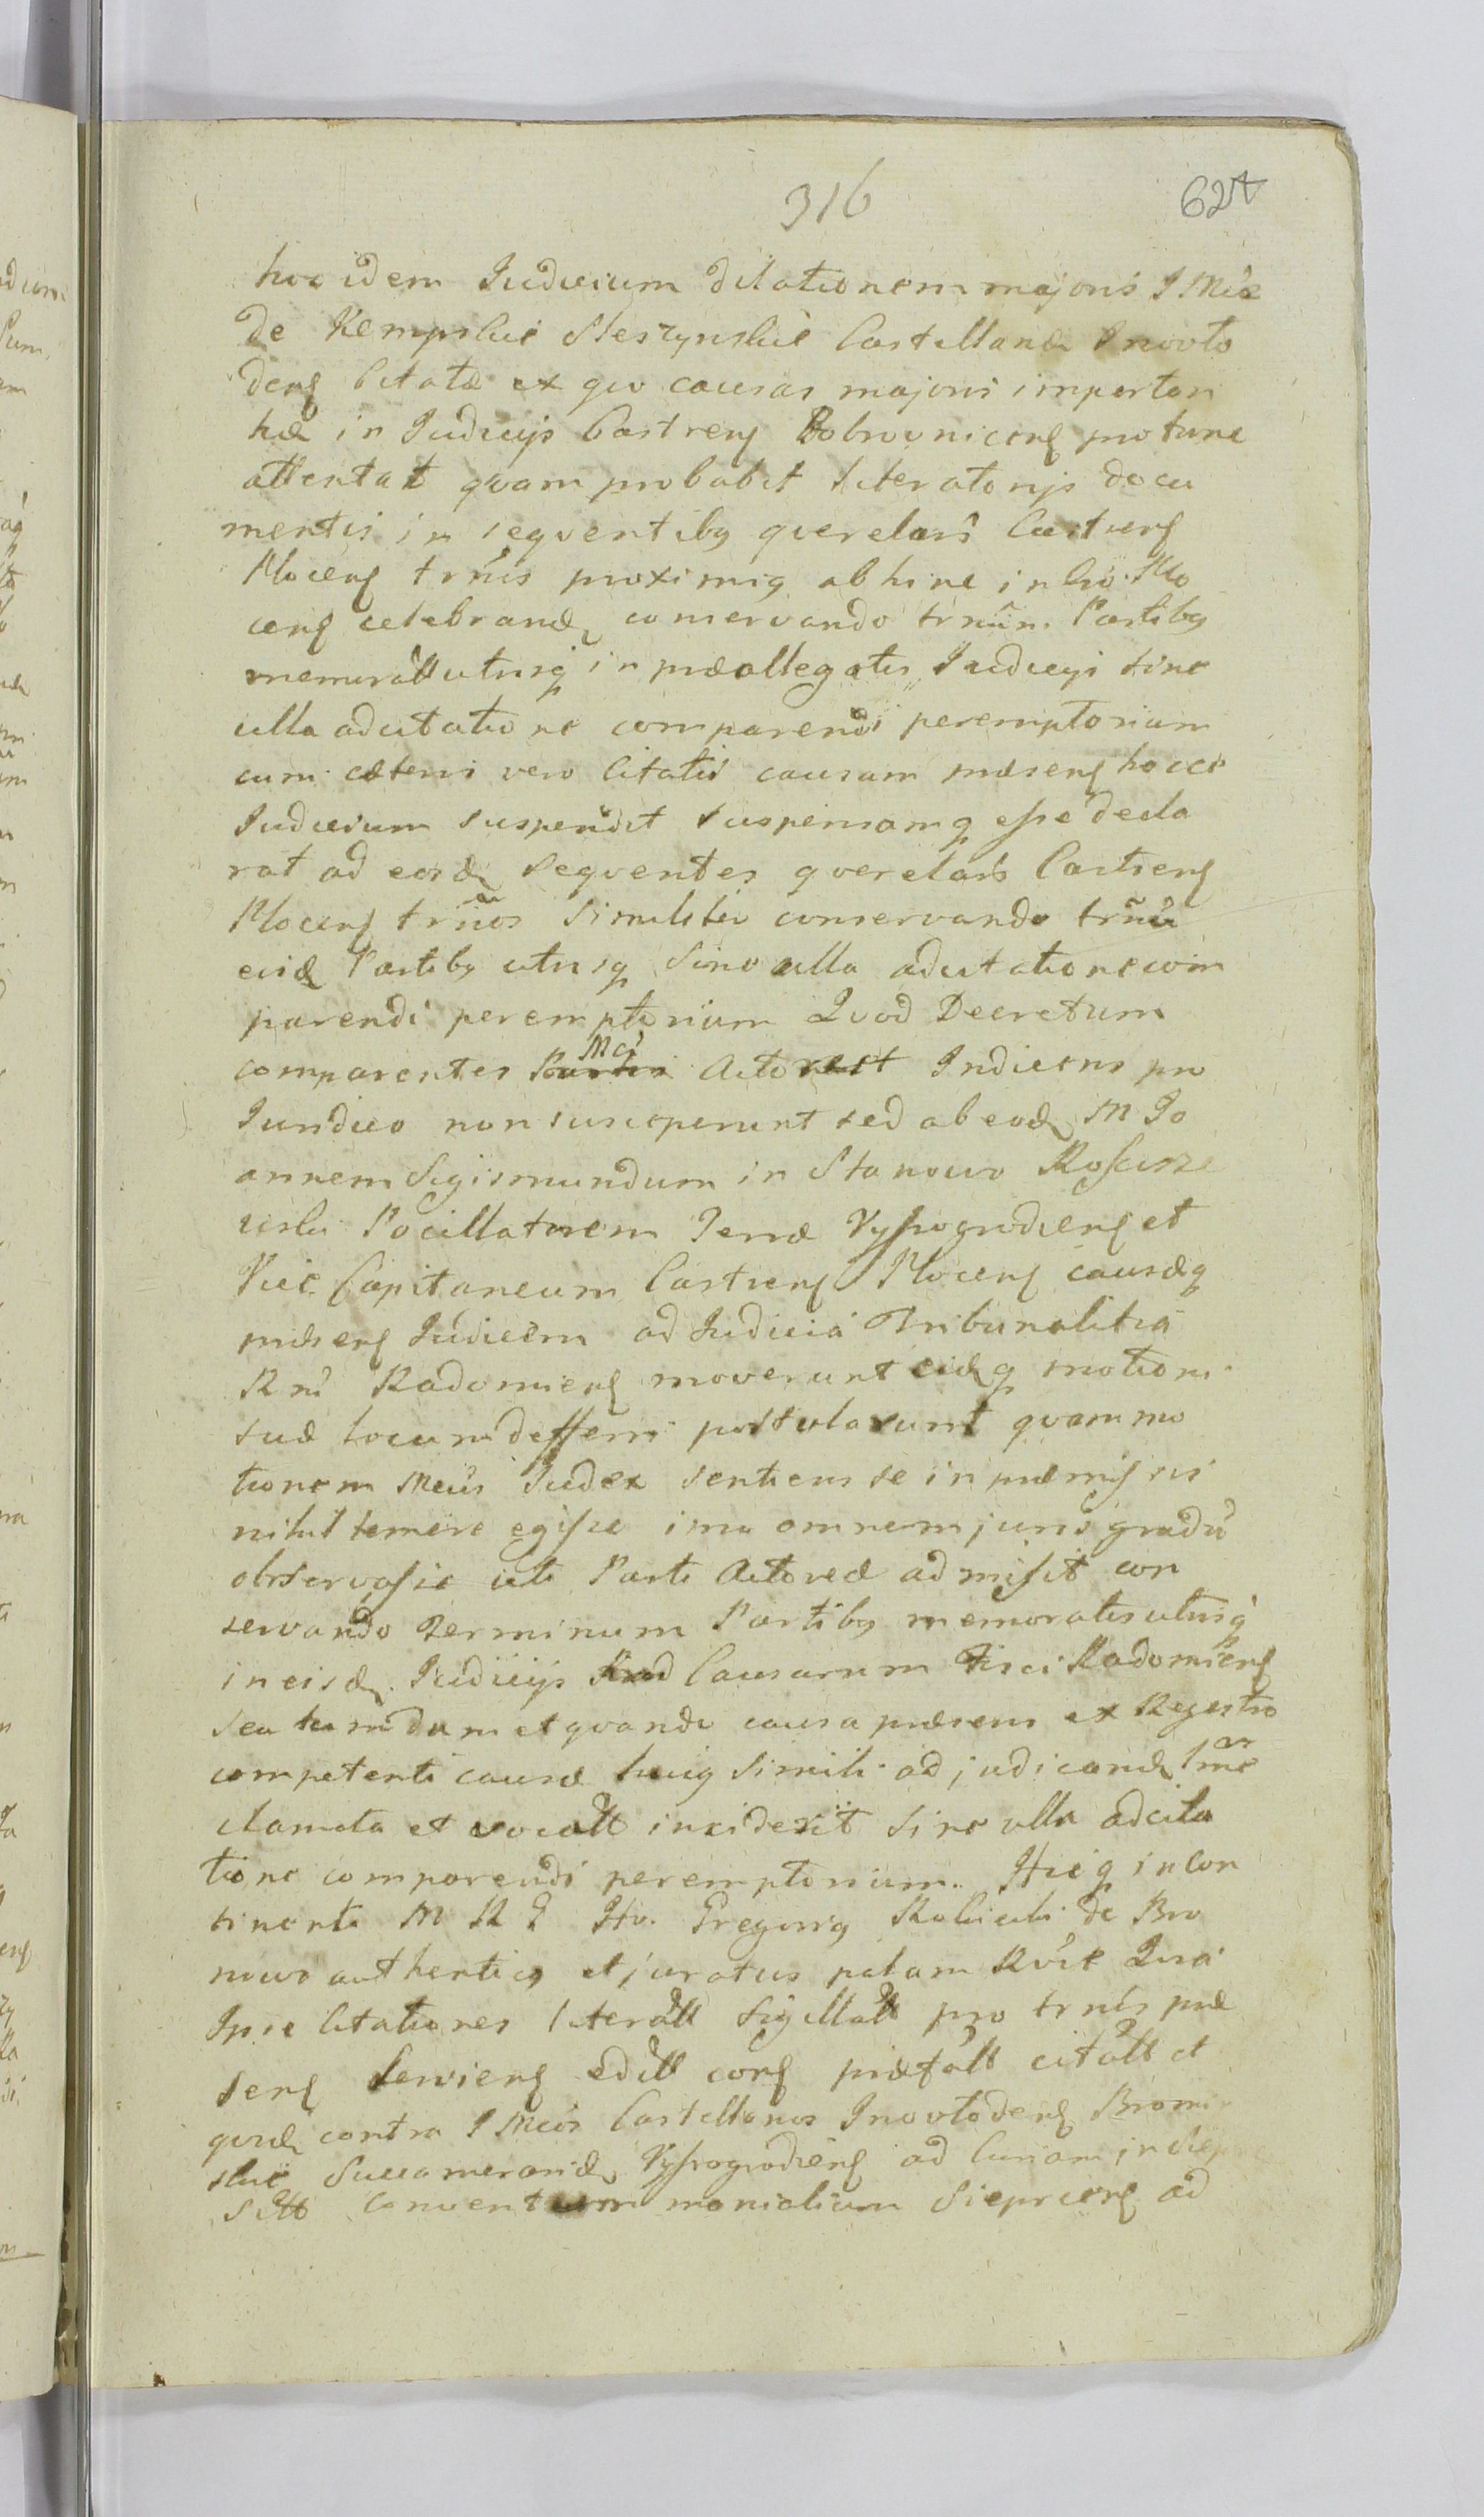 316
624
hoc idem Judicium dilationem majoris J Mcae
de Kempskie Steszynskie Castellanae Inovlo
dens Citatae ex quo causas majoris importan
tiae in Judicijs Castrens Bobrovnicens protunc
attentat quam probabit literatorijs docu
mentis in seqventibq querelars Castrens
Plocens trnis proximiq abhinc in Cro Plo
cens celebrand conservando trnum Partibq
memoratt utrisq in praeallegatis Judicijs sine
ulla adcitatione comparendi peremptorium
cum caeteris vero Citatis causam praesens hocce
Judicium suspendit suspensamq esse decla
rat ad eosd seqventes qverelars Castrens
Plocens trnos similiter conservando trnu
eisd Partibq utrisq sine ulla adcitatione com
parendi peremptorium Qvod Decretum
comparentes Mci Actorest Judicens pro
Juridico non susceperunt sed ab eod M Jo
annem Sigismundum in Stanowo Roscisze
wski Pocillatorem Terrae Vyssogrodiens et
Vice Capitaneum Castrens Plocens causaeq
praesens Judicem ad Judicia Tribunalitia
Rni Radomiens moverunt eidq motioni
suae locum defferri postularunt quam mo
tionem Mcus Judex sentiens se in praemissis
nihil temere egisse imo omnem juris gradu
observasse uti Parti Actoreae admisit con
servando Terminum Partibq memoratis utrisq
in eisd Judicijs Causarum Fisci Radomiens
seu tu m dum et quando causa praesens ex Regestro
competenti causae huicq simili ad judicand
clamata et vocatt inciderit sine ulla adcita
tione comparendi peremptorium. Hicq in Con
tinenti M R G Ho. Gregoriq Rolicki de Bro
nowo authenticq et juratus palam Rvit Qvia
Ipse Citationes literatt Sigillatt pro trnis prae
sens serviens editt cors praefatt citatt et
qvid contra J Mcos Castellanos Inovlodens Bromir
skie Succamerarid Vyssogrodiens ad Curiam in Siepre
sitt Conventum monialium Sieprcens ad